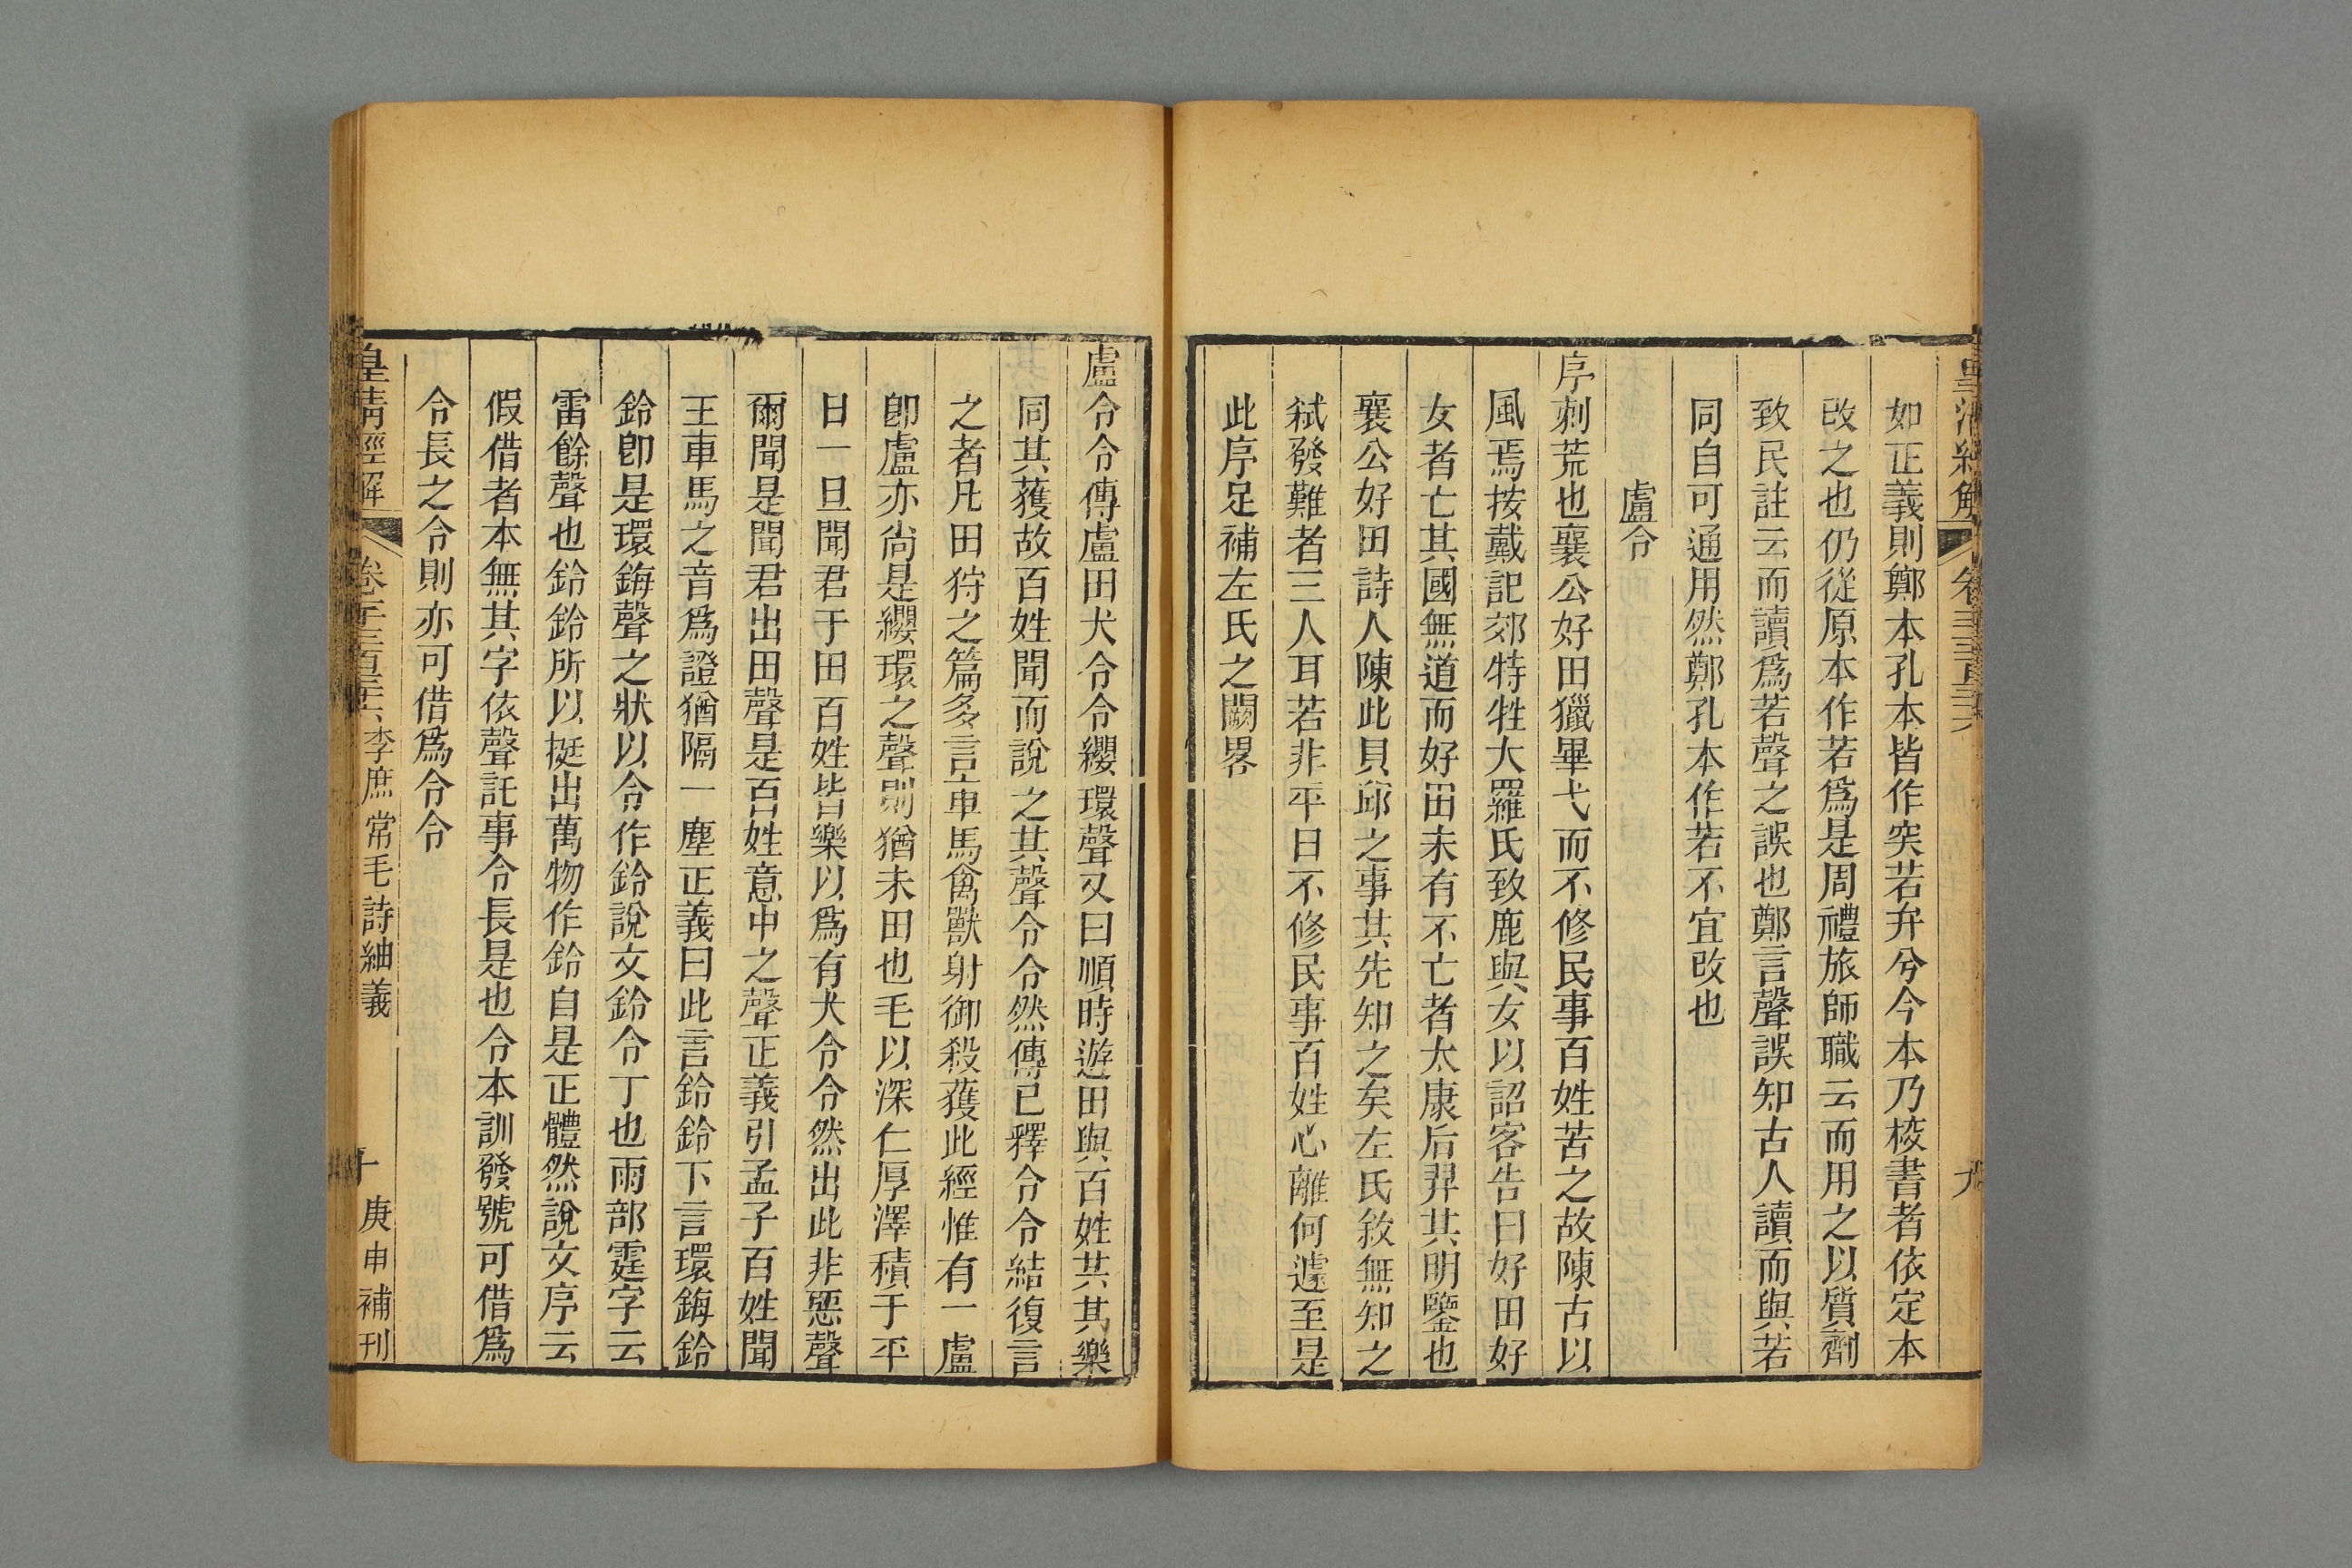 皇清經解 卷千三百三十六 九
如正義則鄭本孔本皆作突若弁兮今本乃梭書者依定本
改之也仍從原本作若爲是周禮旅師職云而用之以質劑
致民註云而讀爲若聲之誤也鄭言聲誤知古人讀而與若
同自可通用然鄭孔本作若不宜改也
盧令
序刺荒也襄公好田獵畢弋而不修民事百姓苦之故陳古以
風焉按戴記郊特牲大羅氏致鹿與女以詔客告曰好田好
女者亡其國無道而好田未有不亡者太康后羿其明鑒也
襄公好田詩人陳此貝邱之事其先知之矣左氏敘無知之
弒發難者三人耳若非平日不修民事百姓心離何遽至是
此序足補左氏之闕畧
盧令令傳盧田犬令令纓環聲又曰順時遊田與百姓共其樂
同其獲故百姓聞而說之其聲令令然傳已釋令令結復言
之者凡田狩之篇多言車馬禽獸射御殺獲此經惟有一盧
卽盧亦尙是纓環之聲則猶未田也毛以深仁厚澤積于平
日一旦聞君于田百姓皆樂以爲有犬令令然出此非惡聲
爾聞是聞君出田聲是百姓意中之聲正義引孟子百姓聞
王車馬之音爲證猶隔一塵正義曰此言鈴鈴下言環鋂鈴
鈴卽是環鋂聲之狀以令作鈴說文鈴令丁也雨部霆字云
雷餘聲也鈴鈴所以挺出萬物作鈴自是正體然說文序云
假借者本無其字依聲託事令長是也令本訓發號可借爲
令長之令則亦可借爲令令
皇清經解 卷千三百三十六 李庶常毛詩紬義 十 庚申補刊